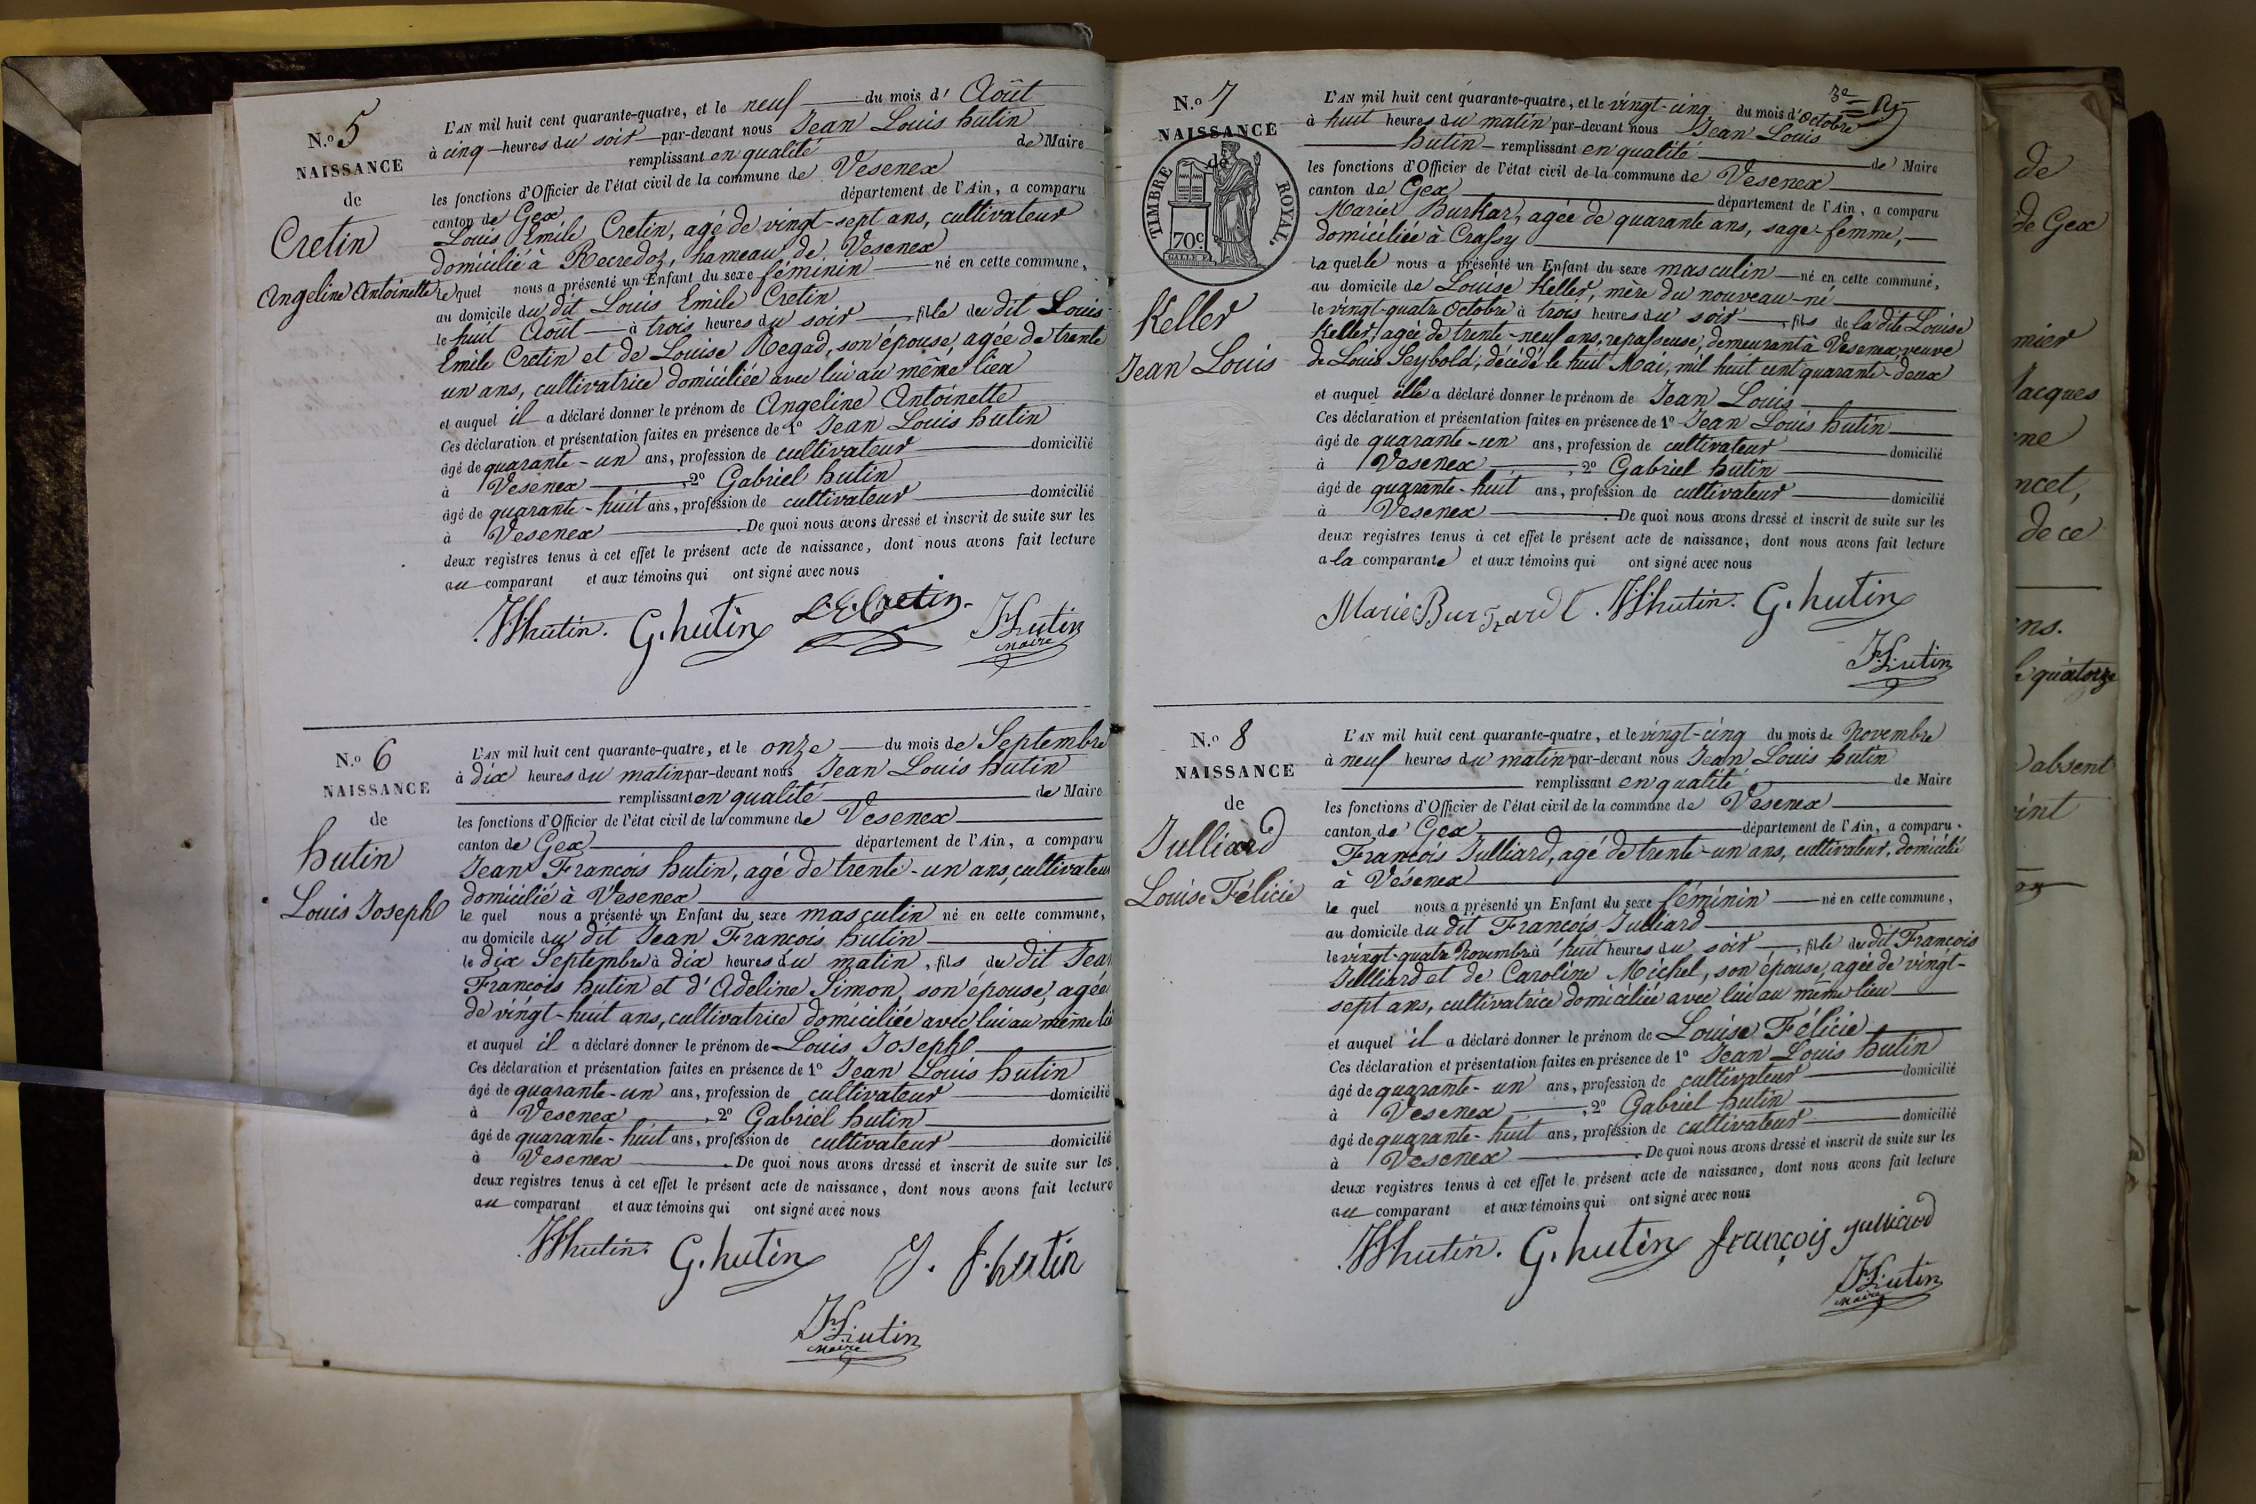 N.o 5
NAISSANCE
de
Cretin
Angeline Antoinette
L'AN mil huit cent quarante-quatre, et le neuf du mois d' Août
à cinq heures du soir par-devant nous Jean Louis hutin
remplissant en qualité de Maire
les fonctions d'Officier de l'état civil de la commune de Vesenex
canton de Gex département de l'Ain, a comparu
Louis Emile Cretin, agé de vingt-sept ans, cultivateur
domicilié à Recredoz, hameau de Vesenex
le quel nous a présenté un Enfant du sexe féminin né en cette commune,
au domicile du dit Louis Emile Cretin
le huit Août à trois heures du soir, fille du dit Louis
Emile Cretin et de Louise Regad, son épouse, agée de trente
un ans, cultivatrice domiciliée avec lui au même lieu
et auquel il a déclaré donner le prénom de Angeline Antoinette
Ces déclaration et présentation faites en présence de 1o Jean Louis hutin
âgé de quarante-un ans, profession de cultivateur domicilié
à Vesenex, 2o Gabriel hutin
âgé de quarante-huit ans, profession de cultivateur domicilié
à Vesenex. De quoi nous avons dressé et inscrit de suite sur les
deux registres tenus à cet effet le présent acte de naissance, dont nous avons fait lecture
au comparant et aux témoins qui ont signé avec nous
hutin. G. hutin L. E. Cretin. hutin
Maire
N.o 6
NAISSANCE
de
hutin
Louis Joseph
L'AN mil huit cent quarante-quatre, et le onze du mois de Septembre
à dix heures du matin par-devant nous Jean Louis hutin
remplissant en qualité de Maire
les fonctions d'Officier de l'état civil de la commune de Vesenex
canton de Gex département de l'Ain, a comparu
Jean François hutin, agé de trente-un ans, cultivateur
domicilié à Vesenex
le quel nous a présenté un Enfant du sexe masculin né en cette commune,
au domicile du dit Jean François hutin
le dix Septembre à dix heures du matin, fils du dit Jean
François hutin et d'Adeline Simon, son épouse, agée
de vingt-huit ans, cultivatrice domiciliée avec lui au même
et auquel il a déclaré donner le prénom de Louis Joseph
Ces déclaration et présentation faites en présence de 1o Jean Louis hutin
âgé de quarante-un ans, profession de cultivateur domicilié
à Vesenex, 2o Gabriel hutin
âgé de quarante-huit ans, profession de cultivateur domicilié
à Vesenex. De quoi nous avons dressé et inscrit de suite sur les
deux registres tenus à cet effet le présent acte de naissance, dont nous avons fait lecture
au comparant et aux témoins qui ont signé avec nous
hutin. G. hutin J. f. hutin
hutin
Maire
3e
N.o 7
NAISSANCE
de
TIMBRE ROYAL.
70c
Keller
Jean Louis
L'AN mil huit cent quarante-quatre, et le vingt-cinq du mois d'Octobre
à huit heures du matin par-devant nous Jean Louis
hutin remplissant en qualité de Maire
les fonctions d'Officier de l'état civil de la commune de Vesenex
canton de Gex département de l'Ain, a comparu
Marie Burkar, agée de quarante ans, sage-femme,
domiciliée à Crassy
la quelle nous a présenté un Enfant du sexe masculin né en cette commune,
au domicile de Louise Keller, mère du nouveau-né
le vingt-quatre Octobre à trois heures du soir, fils de la dite Louise
Keller, agée de trente-neuf ans, repasseuse, demeurant à Vesenex, veuve
de Louis Seybold, décédé le huit Mai, mil huit cent quarante-deux
et auquel elle a déclaré donner le prénom de Jean Louis
Ces déclaration et présentation faites en présence de 1o Jean Louis hutin
âgé de quarante-un ans, profession de cultivateur domicilié
à Vesenex, 2o Gabriel hutin
âgé de quarante-huit ans, profession de cultivateur domicilié
à Vesenex. De quoi nous avons dressé et inscrit de suite sur les
deux registres tenus à cet effet le présent acte de naissance, dont nous avons fait lecture
a la comparante et aux témoins qui ont signé avec nous
Marie hutin. G. hutin
hutin
N.o 8
NAISSANCE
de
Julliard
Louise Félicie
L'AN mil huit cent quarante-quatre, et le vingt-cinq du mois de Novembre
à neuf heures du matin par-devant nous Jean Louis hutin
remplissant en qualité de Maire
les fonctions d'Officier de l'état civil de la commune de Vesenex
canton de Gex département de l'Ain, a comparu
François Julliard, agé de trente-un ans, cultivateur, domicilié
à Vésenex
le quel nous a présenté un Enfant du sexe féminin né en cette commune,
au domicile du dit François Julliard
le vingt-quatre Novembre à huit heures du soir, fille du dit François
Julliard et de Caroline Michel, son épouse, agée de vingt-
sept ans, cultivatrice domiciliée avec lui au même lieu
et auquel il a déclaré donner le prénom de Louise Félicie
Ces déclaration et présentation faites en présence de 1o Jean Louis hutin
âgé de quarante-un ans, profession de cultivateur domicilié
à Vesenex, 2o Gabriel hutin
âgé de quarante-huit ans, profession de cultivateur domicilié
à Vesenex. De quoi nous avons dressé et inscrit de suite sur les
deux registres tenus à cet effet le présent acte de naissance, dont nous avons fait lecture
au comparant et aux témoins qui ont signé avec nous
hutin. G. hutin françois julliard
hutin
Maire
de
de Gex
Jacques
de ce
quatorze
absent